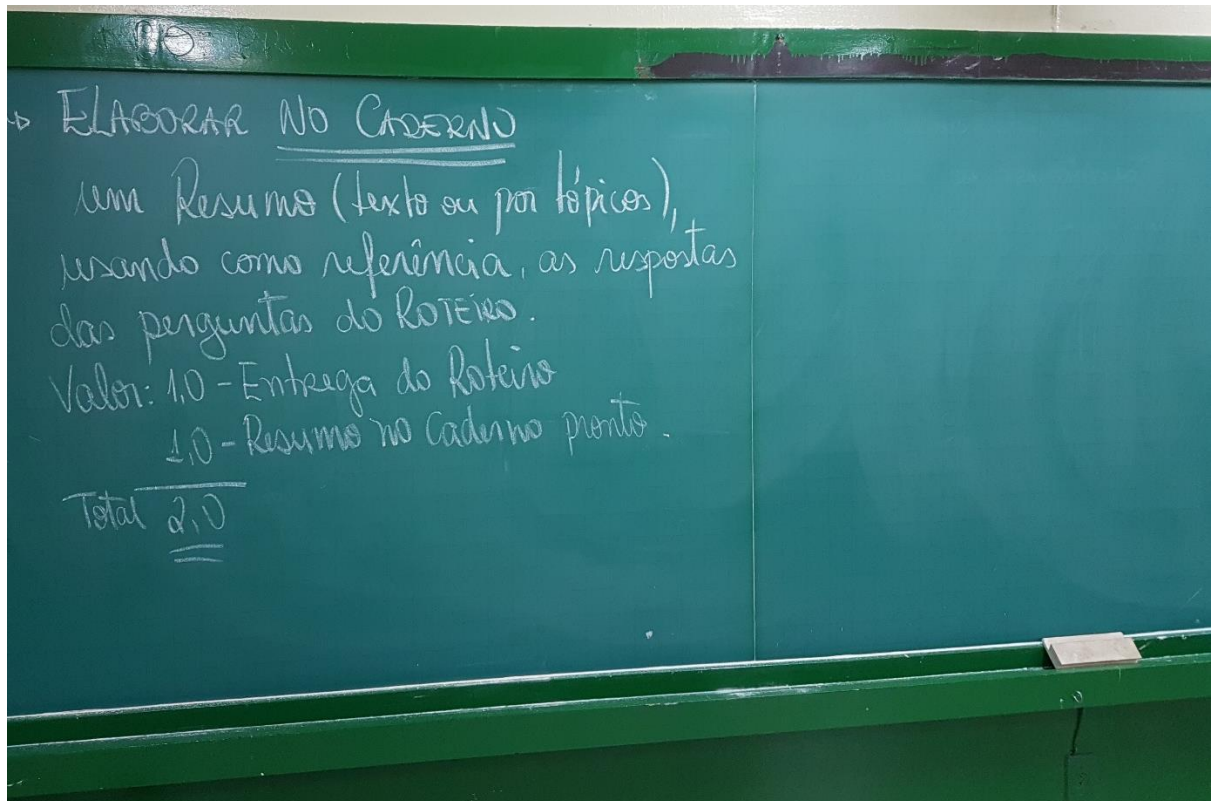 → ELABORAR NO CADERNO
um Resumo (texto ou por tópicos),
usando como referência, as respostas
das perguntas do ROTEIRO.
Valor: 1,0 - Entrega do Roteiro
1,0 - Resumo no Caderno pronto.
Total 2,0